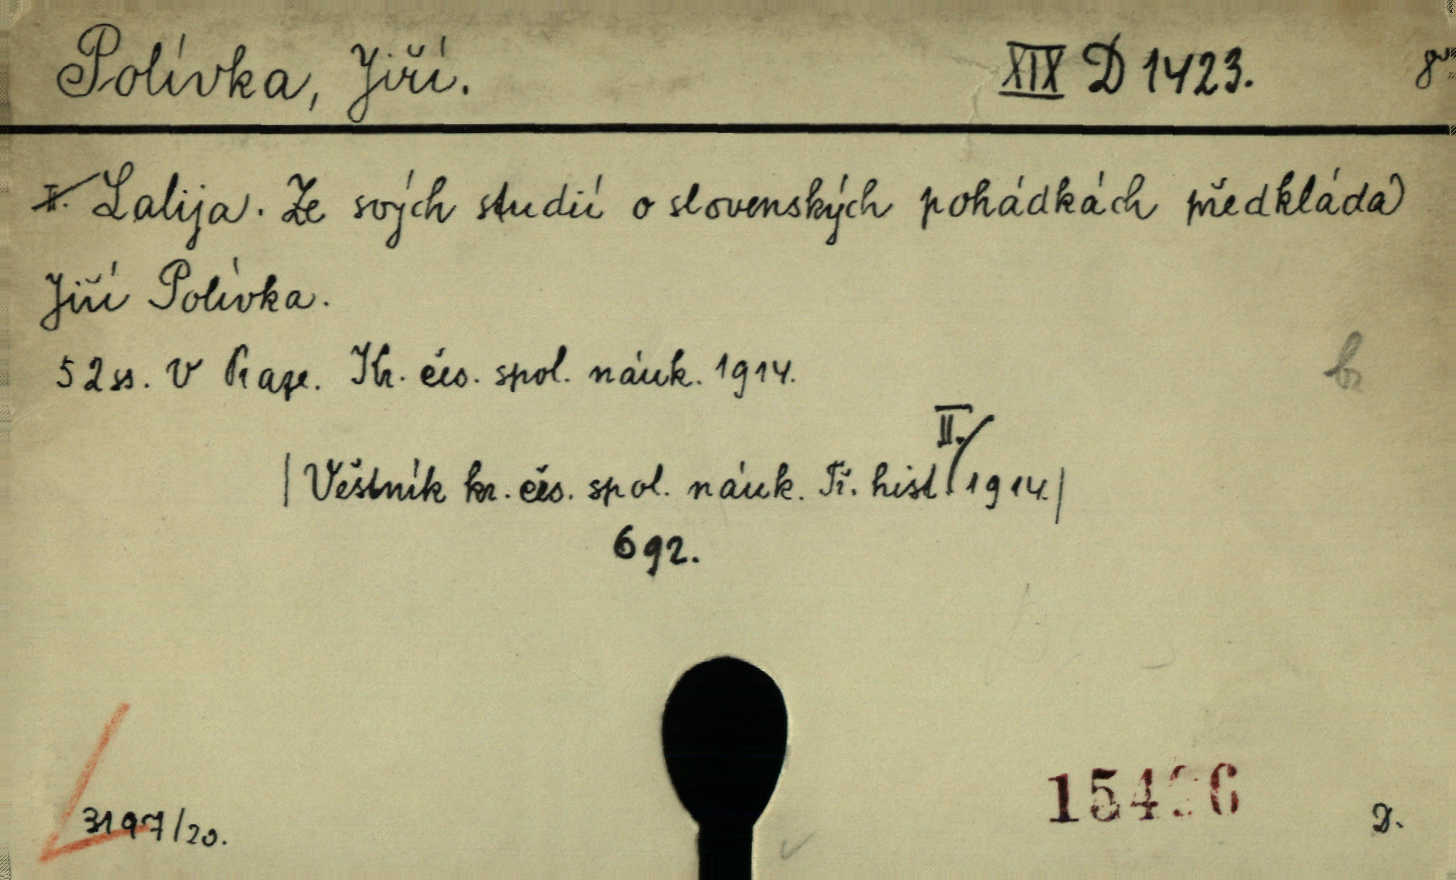 Polívka, Jiří. XIX D 1423. 8°
I. Lalija. Ze svých studií o slovenských pohádkách předkládá
Jiří Polívka.
52 ss. V Praze. Kr. čes. spol. náuk. 1914.
|Věstník kr. čes. spol. náuk. Tř. hist. II./1914.|
692.
3197/20.
D.